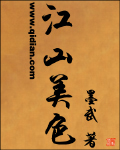 江山美色
墨武 著
www.qidian.com